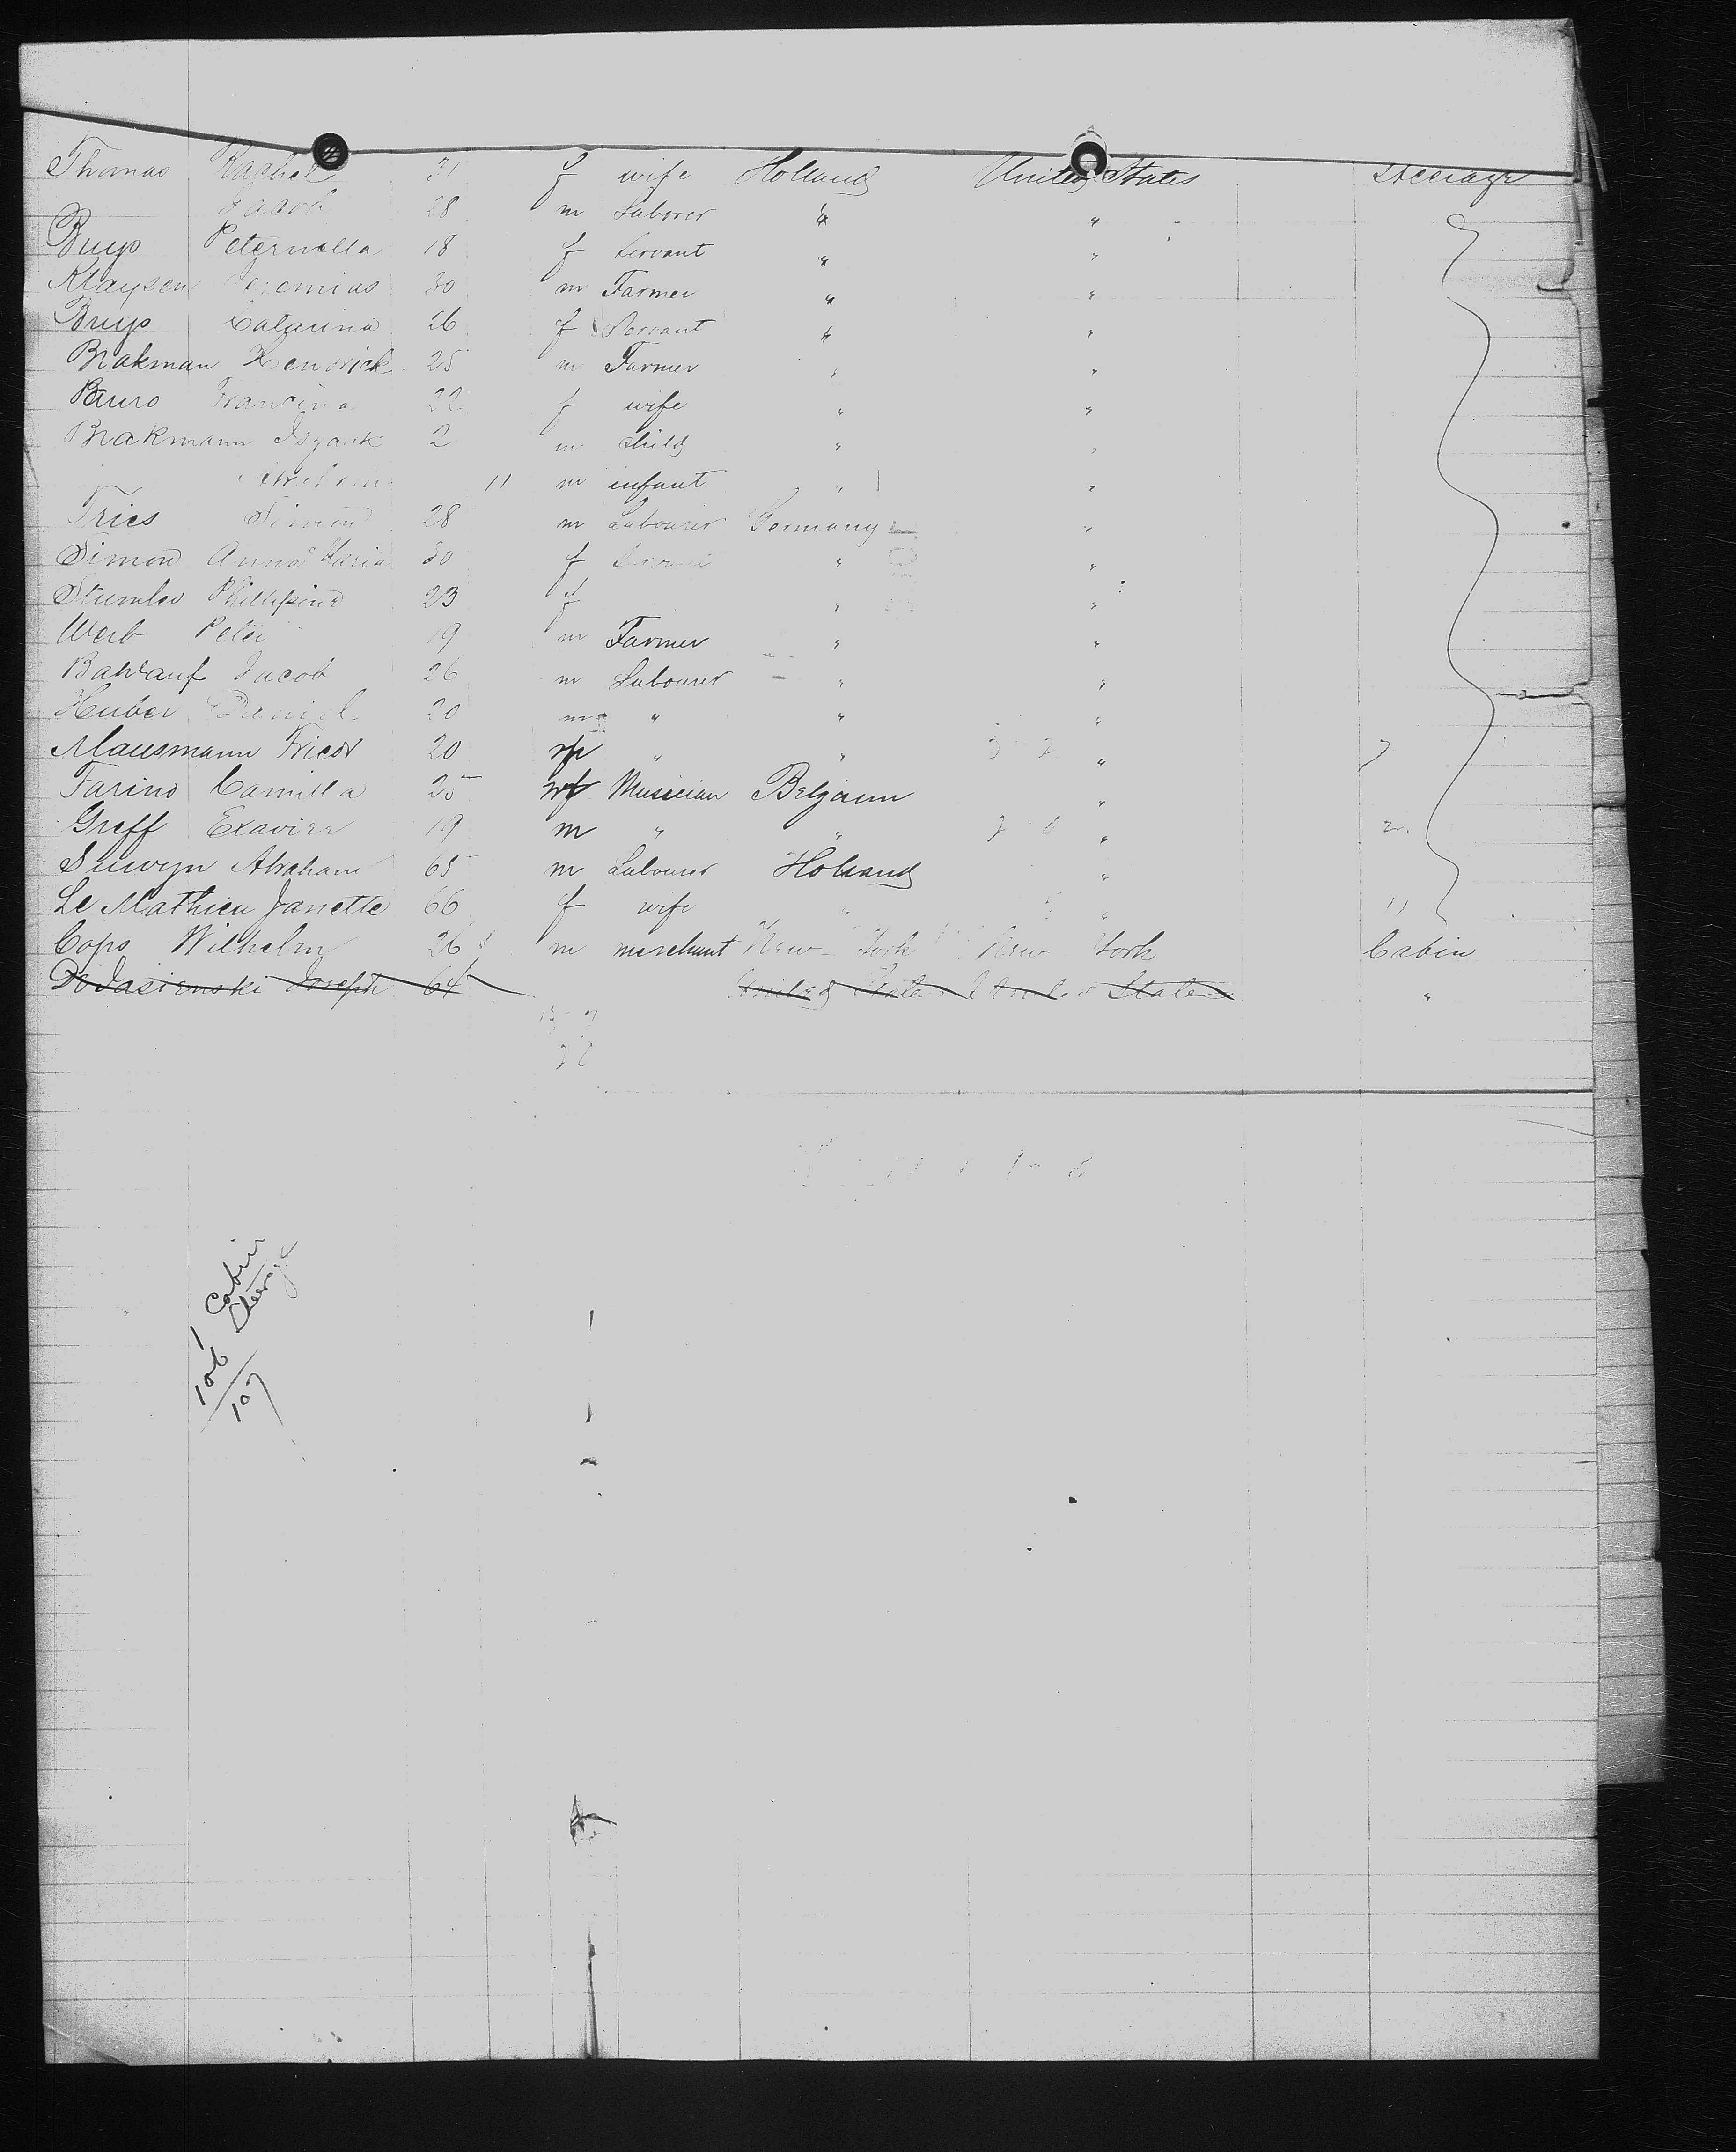 Thomas Rachel 31 f wife Holland United States Steerage
Jacob 28 m Laborer " "
Buyo Peternella 18 f Servant " "
Klaysen 30 m Farmer " "
Buyo Catarina 26 f Servant " "
Brakman Hendrick 25 m Farmer " "
Francina 22 f wife " "
Brakmann Iszaak 2 m child " "
11 m infant " "
Tries Simon 28 m Labourer Germany "
Simon Anna Maria 30 f " "
Phillipine 23 f " "
Werb Peter 19 m Farmer " "
Jacob 26 m Labourer " "
Huber Daniel 20 m " " "
Mausmann 20 " " "
Farino Camilla 25 Musician Belgium "
Greff Exavier 19 m " " " 2
Abraham 65 m Labourer Holland "
Le Mathieu Janette 66 f wife " " 11
Cops Wilhelm 26 m merchant New York New York Cabin
Joseph 64 United States United States "
1 Cabin
106 Steerage
107